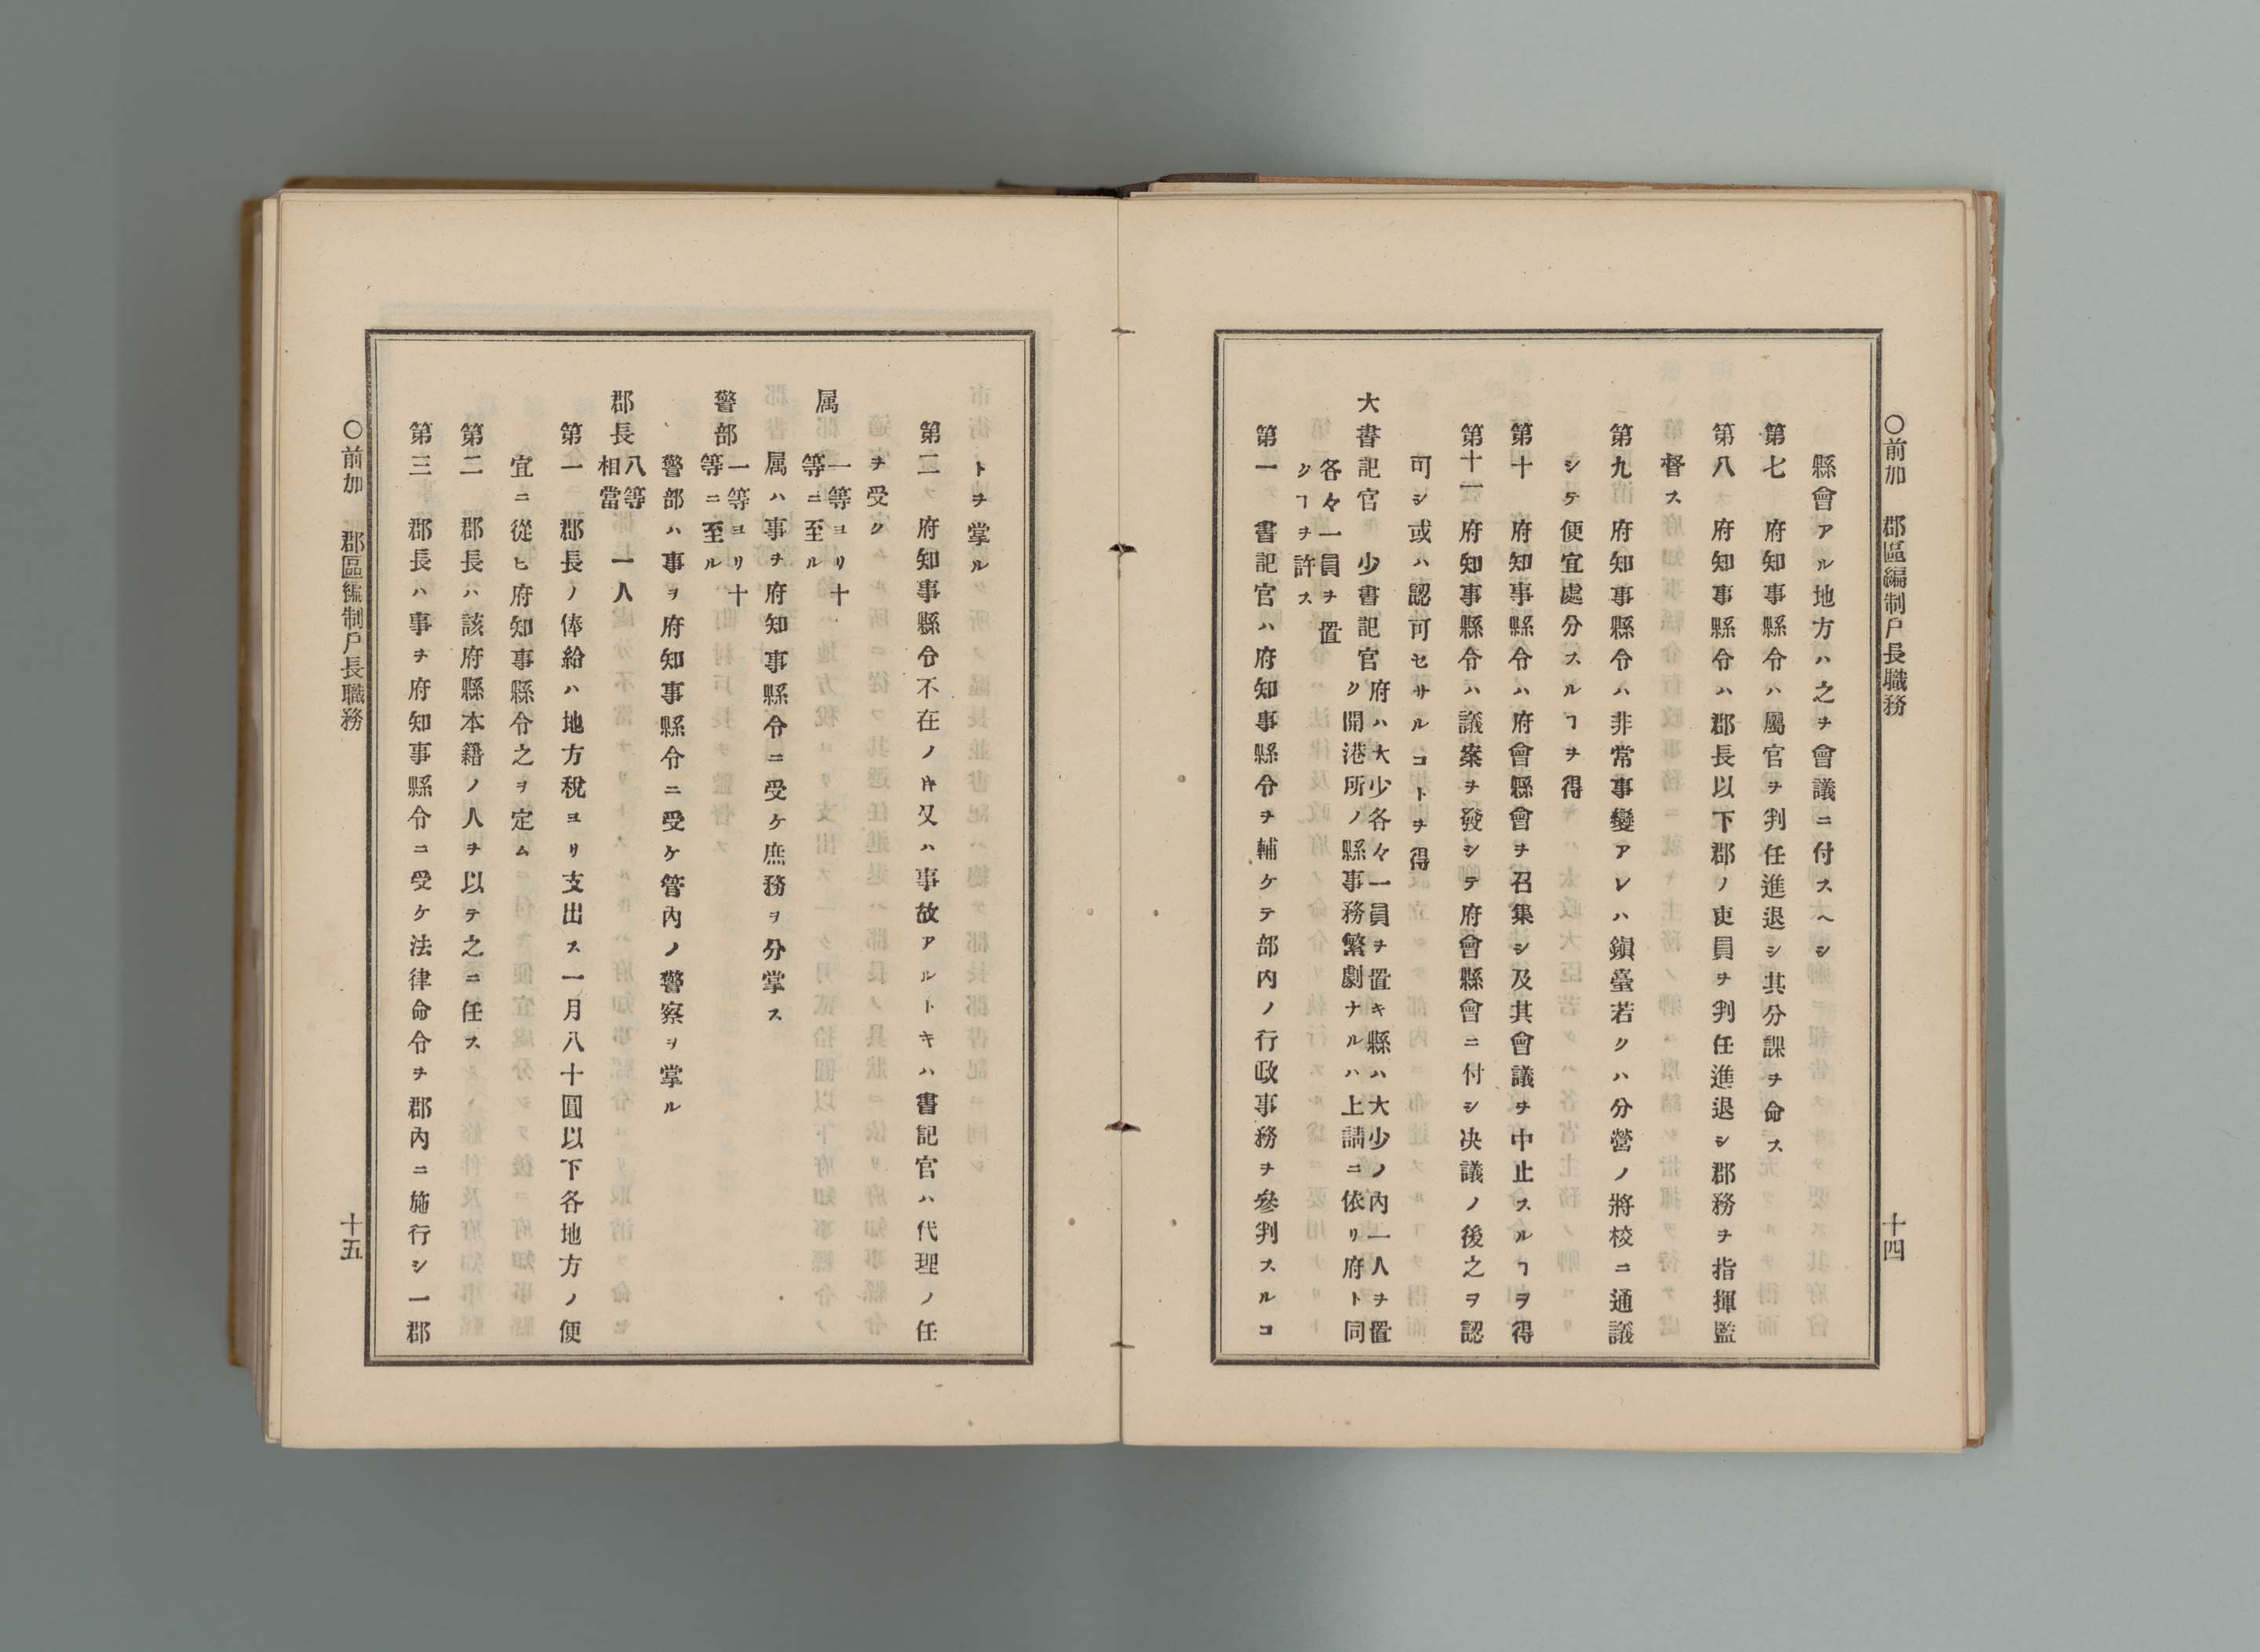 〇前加　郡區編制戸長職務
十四
縣會アル地方ハ之ヲ會議ニ付スヘシ
第七　府知事縣令ハ屬官ヲ判任進退シ其分課ヲ命ス
第八　府知事縣令ハ郡長以下郡ノ吏員ヲ判任進退シ郡務ヲ指揮監
督ス
第九　府知事縣令ハ非常事變アレハ鎭臺若クハ分營ノ將校ニ通議
シテ便宜處分スルヿヲ得
第十　府知事縣令ハ府會縣會ヲ召集シ及其會議ヲ中止スルヿヲ得
第十一　府知事縣令ハ議案ヲ發シテ府會縣會ニ付シ决議ノ後之ヲ認
可シ或ハ認可セサルコトヲ得
大書記官　少書記官
府ハ大少各々一員ヲ置キ縣ハ大少ノ內一人ヲ置
ク開港所ノ縣事務繁劇ナルハ上請ニ依リ府ト同
各々一員ヲ置
クヿヲ許ス
第一　書記官ハ府知事縣令ヲ輔ケテ部内ノ行政事務ヲ參判スルコ
トヲ掌ル
第二　府知事縣令不在ノ𪜈又ハ事故アルトキハ書記官ハ代理ノ任
ヲ受ク
属
一等ヨリ十
等ニ至ル
属ハ事ヲ府知事縣令ニ受ケ庶務ヲ分掌ス
警部
一等ヨリ十
等ニ至ル
警部ハ事ヲ府知事縣令ニ受ケ管內ノ警察ヲ掌ル
郡長
八等
相當
一人
第一　郡長ノ俸給ハ地方稅ヨリ支出ス一月八十圓以下各地方ノ便
宜ニ從ヒ府知事縣令之ヲ定ム
第二　郡長ハ該府縣本籍ノ人ヲ以テ之ニ任ス
第三　郡長ハ事ヲ府知事縣令ニ受ケ法律命令ヲ郡內ニ施行シ一郡
〇前加　郡區編制戸長職務
十五